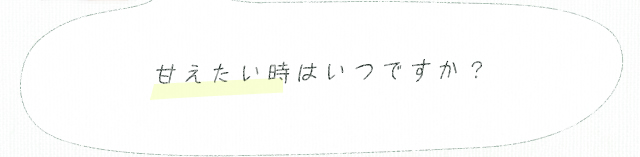 甘えたい時はいつですか？